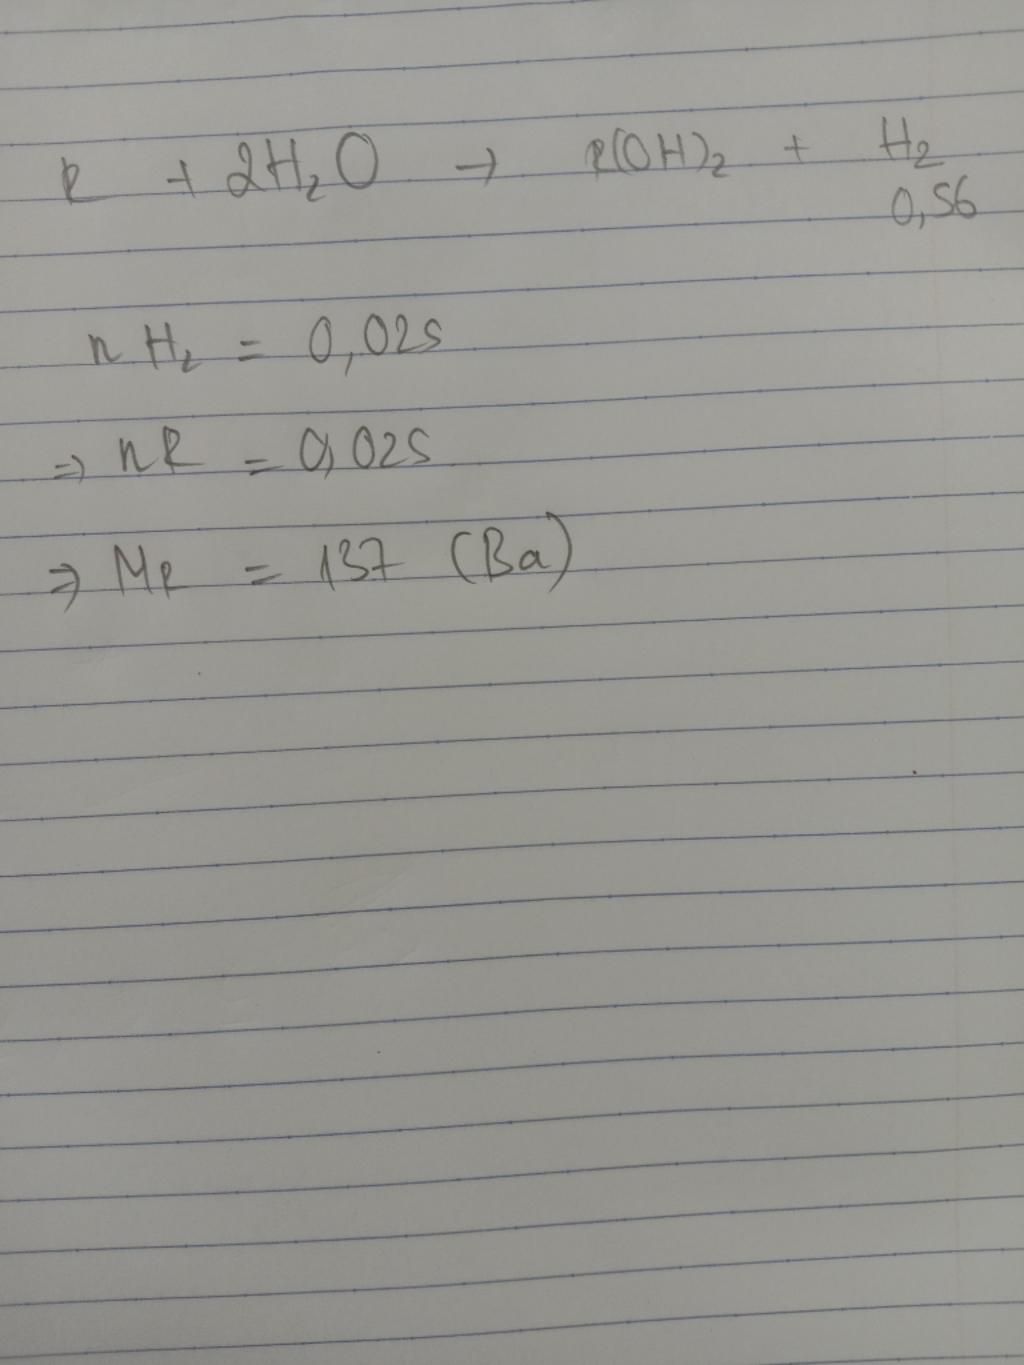 R + 2H₂O → R(OH)₂ + H₂
0,56
n H₂ = 0,025
⇒ nR = 0,025
⇒ MR = 137 (Ba)